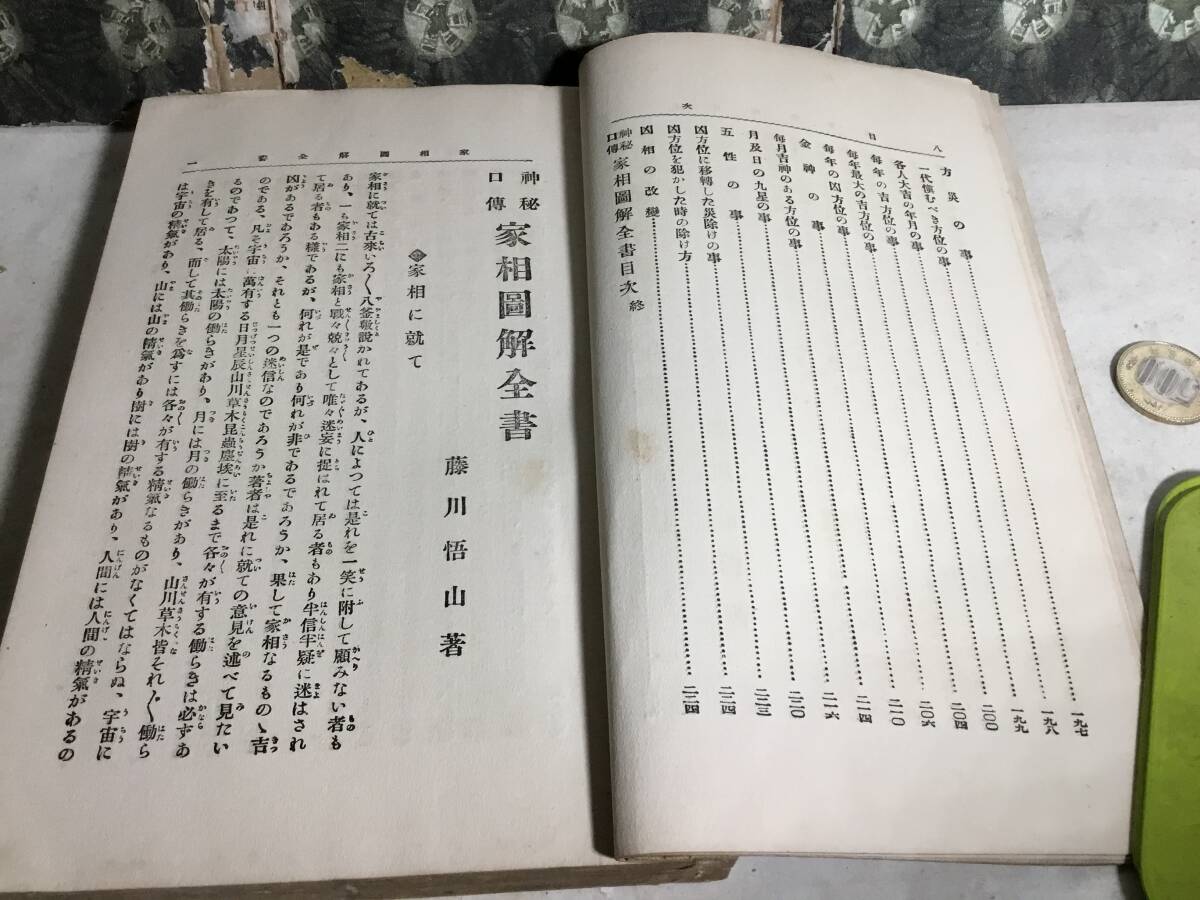 目次
八
方災の事 一九七
一代愼むべき方位の事 一九八
各人大吉の年月の事 一九九
每年の吉方位の事 二〇〇
每年最大の吉方位の事 二〇四
每年の凶方位の事 二〇六
金神の事 二一〇
每月吉神のある方位の事 二一四
月及日の九星の事 二一六
五性の事 二二〇
凶方位に移轉した災除けの事 二二三
凶方位を犯かした時の除け方 二二四
凶相の改變 二三四
神秘口傳 家相圖解全書目次 終
家相圖解全書
一
神秘口傳 家相圖解全書
藤川悟山著
家相に就て
家相に就ては古來いろ〱八釜敷說かれてあるが、人によつては是れを一笑に附して顧みない者も
あり、一も家相二にも家相と戰々兢々として唯々迷妄に捉はれて居る者もあり半信半疑に迷はされ
て居る者もある樣であるが、何れが是であり何れが非であるであろうか、果して家相なるものゝ吉
凶があるであろうか、それとも一つの迷信なのであろうか著者は是れに就ての意見を述べて見たい
のである、凡そ宇宙に萬有する日月星辰山川草木昆蟲塵埃に至るまで各々が有する働らきは必ずあ
るのであつて、太陽には太陽の働らきがあり、月には月の働らきがあり、山川草木皆それ〲働ら
きを有して居る、而して其働らきを爲すには各々が有する精氣なるものがなくてはならぬ、宇宙に
は宇宙の精氣があり、山には山の精氣があり樹には樹の精氣があり、人間には人間の精氣があるの